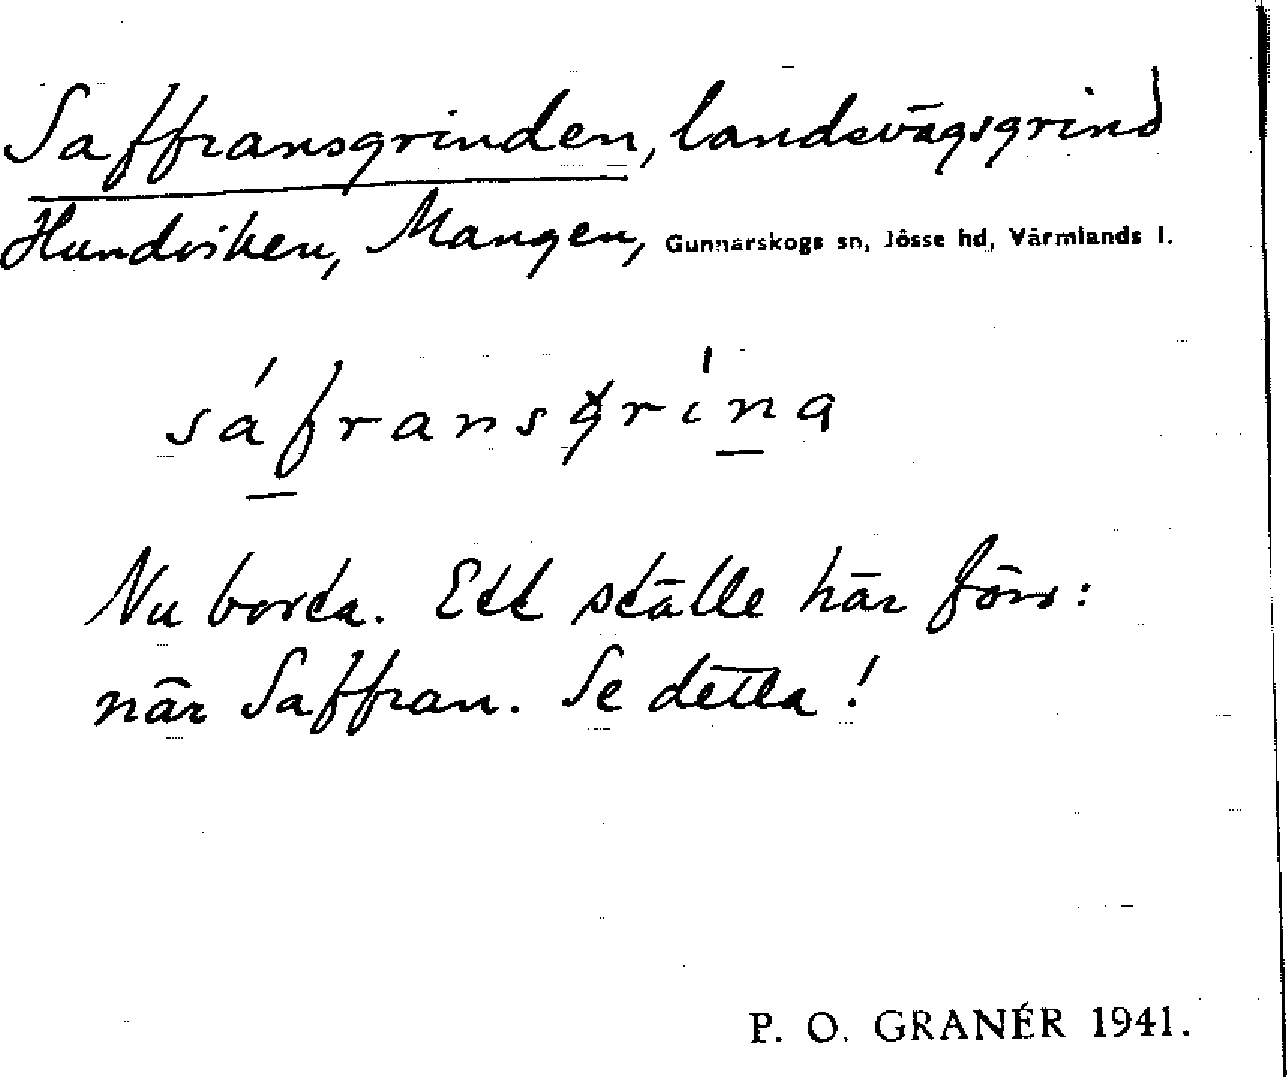 Saffransgrinden, landsvägsgrind
Hundviken, Mangen, Gunnarskogs sn, Jösse hd, Värmlands l.
sáfransgrína
Nu borta. Ett ställe här förs:
när Saffran. Se detta!
P. O. GRANÉR 1941.